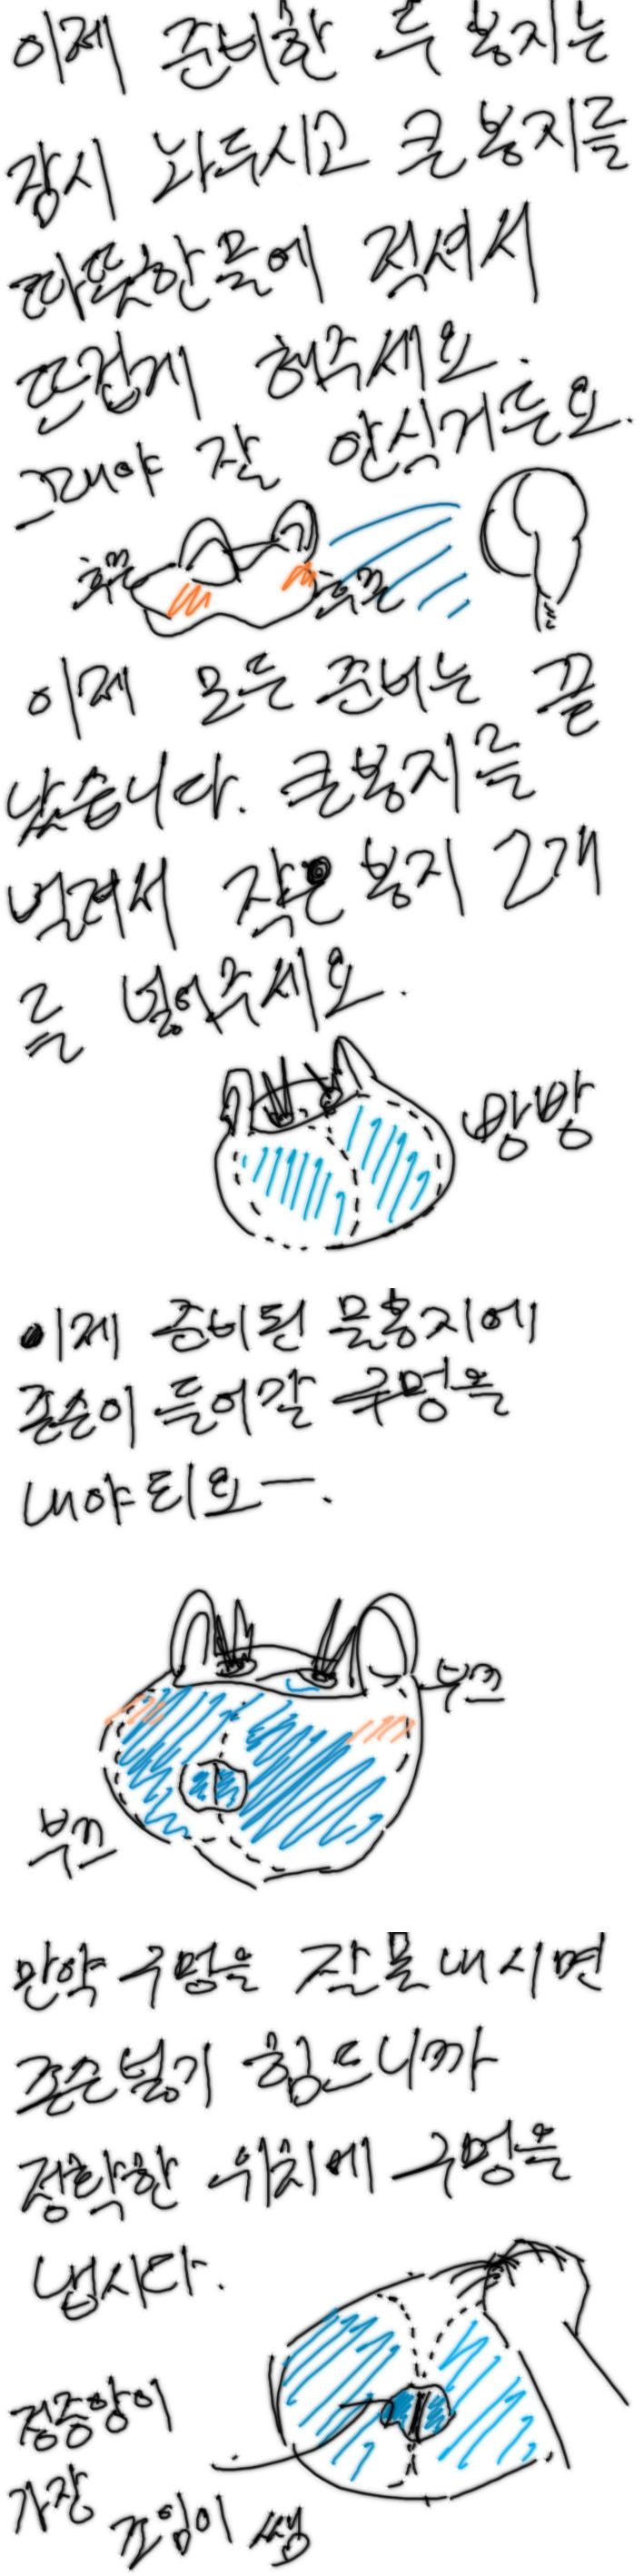 이제 준비한 두 봉지는
잠시 놔두시고 큰 봉지를
따뜻한물에 적셔서
뜨겁게 해주세요.
그래야 잘 안식거든요.
후끈
후끈
이제 모든 준비는 끝
났습니다. 큰봉지를
벌려서 작은 봉지 2개
를 넣어주세요.
빵빵
이제 준비된 물봉지에
존슨이 들어갈 구멍을
내야되요ㅡ.
부끄
부끄
만약 구멍을 잘못내시면
존슨넣기 힘드니까
정확한 위치에 구멍을
냅시다.
정중앙이
가장
조임이 쌤